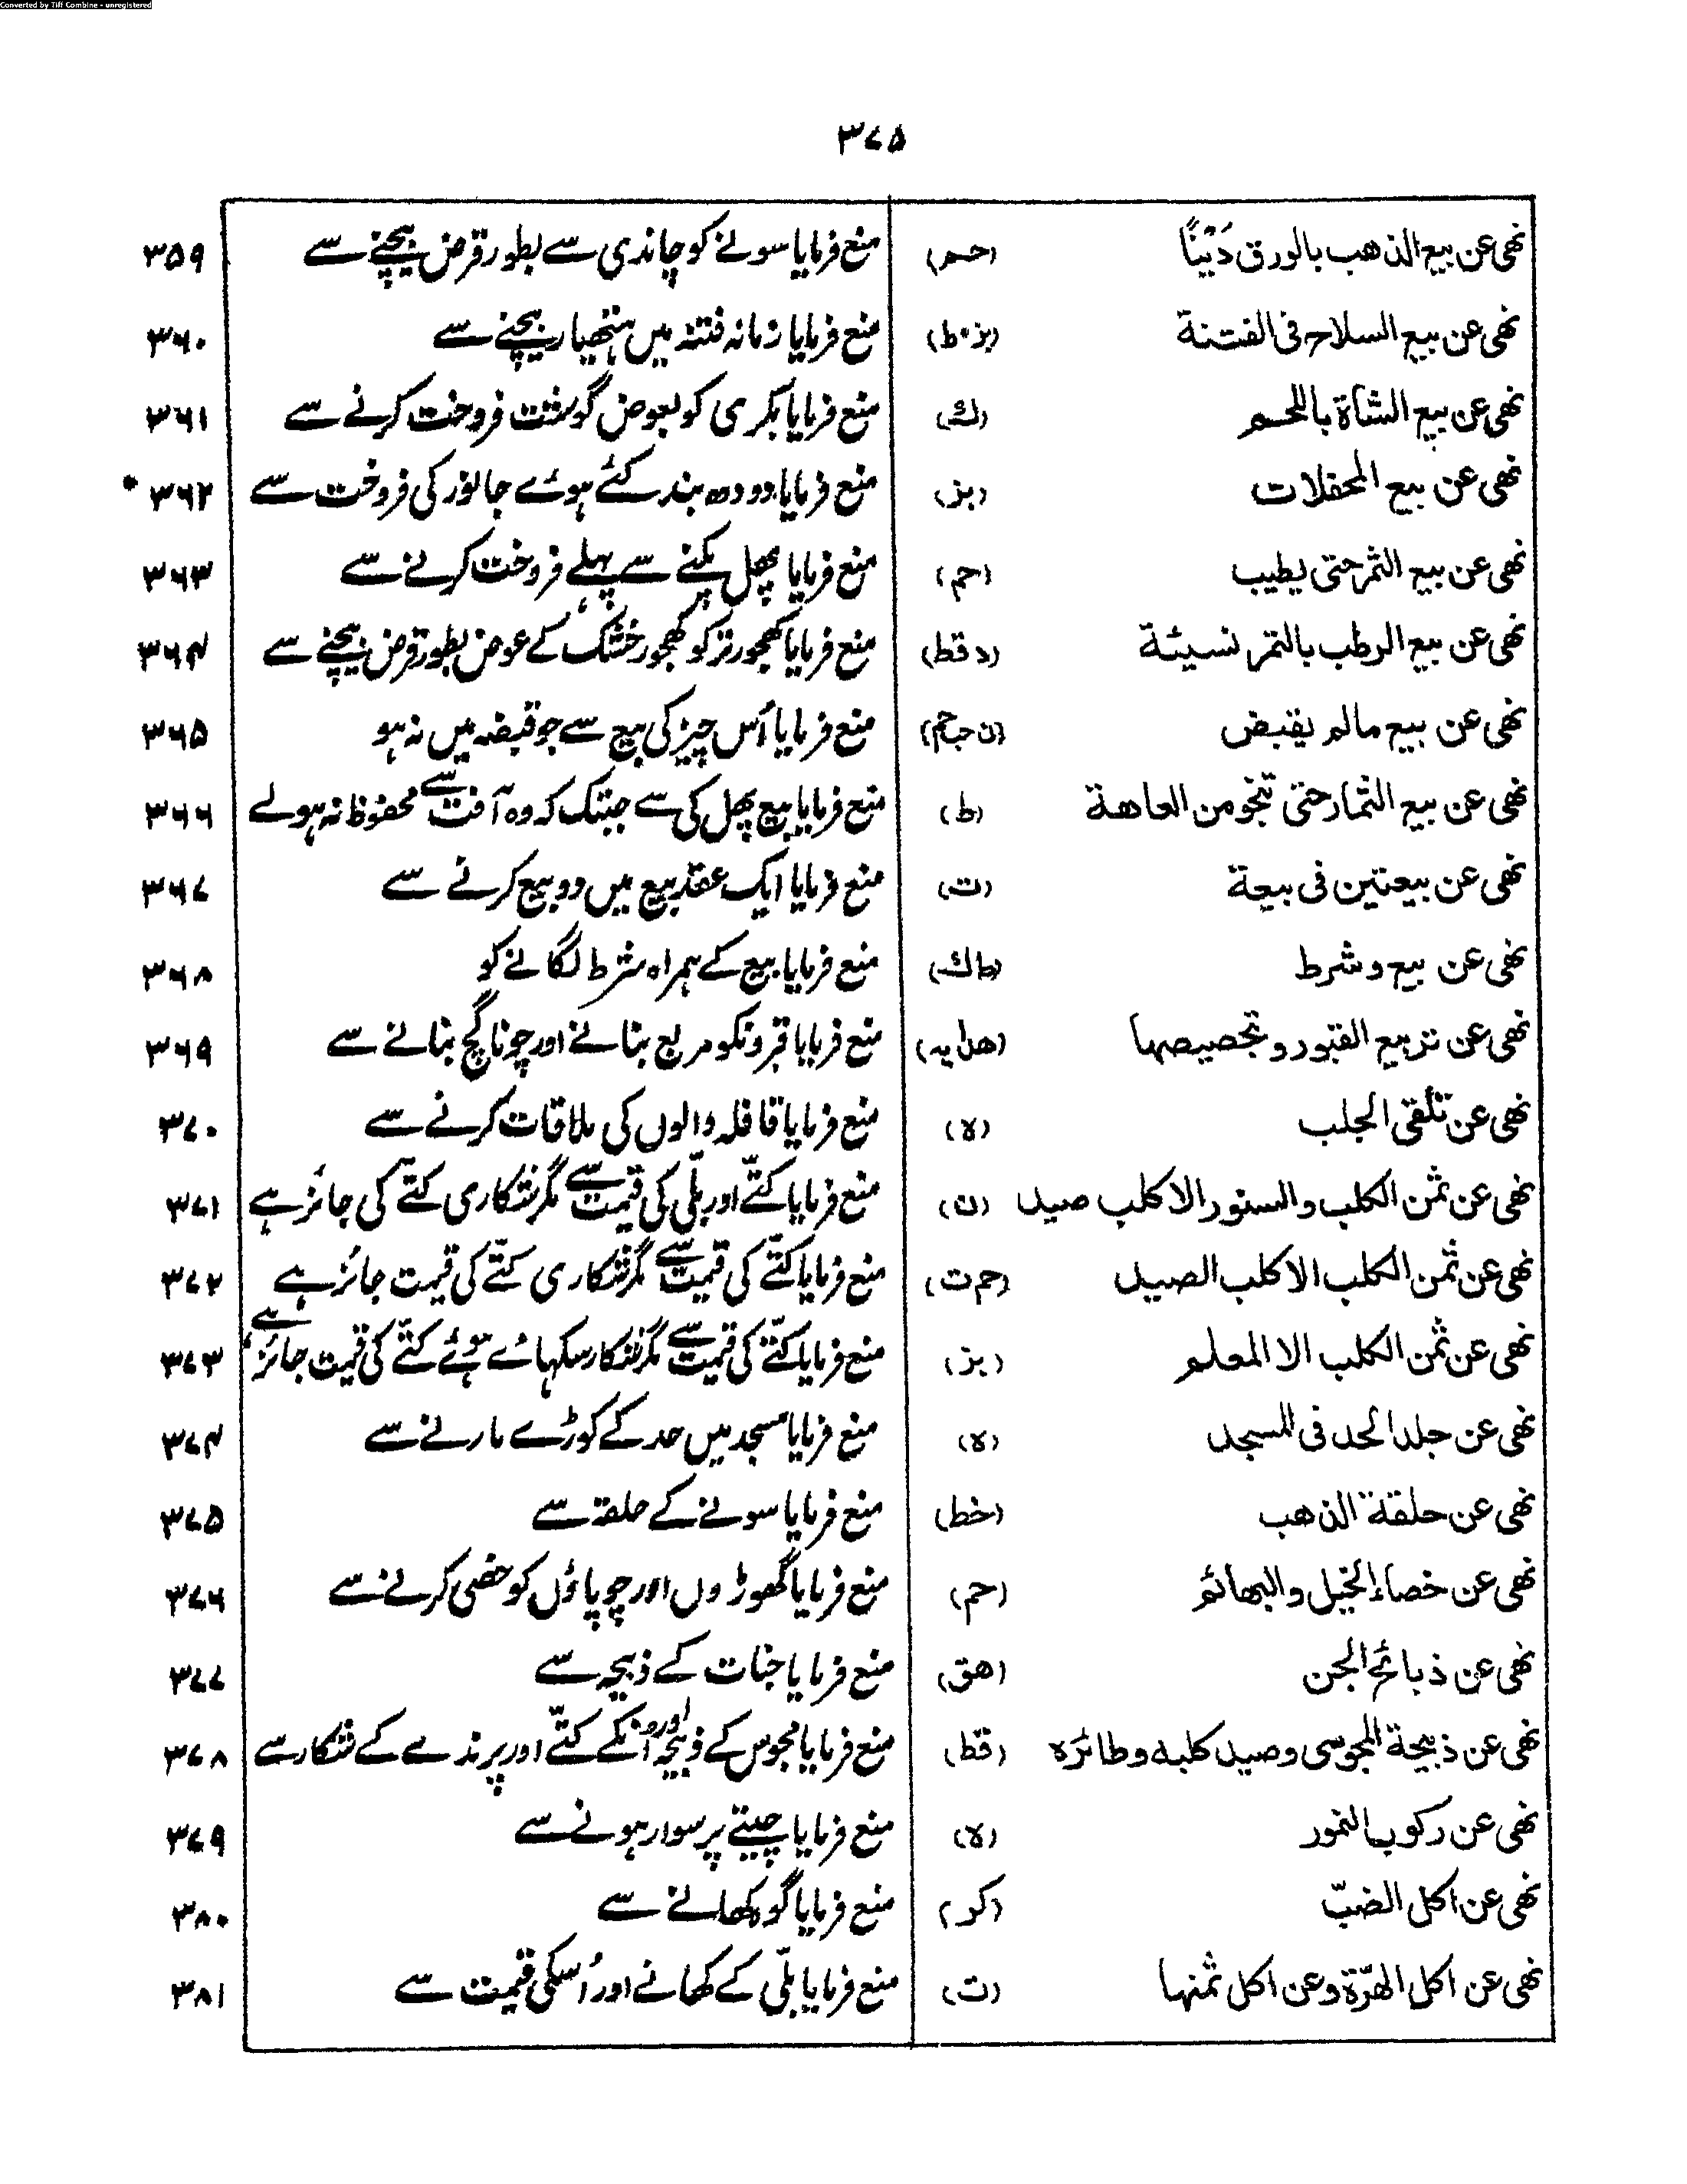 Converted by Tiff Combine - unregistered
۳۷۵
نهى عن بيع الذهب بالورق دَيْنًا (حم) منع فرمایا سونے کو چاندی سے بطور قرض بیچنے سے ۳۵۹
نهى عن بيع السلاح فى الفتنة (بز۰ط) منع فرمایا زمانہ فتنہ میں ہتھیار بیچنے سے ۳۶۰
نهى عن بيع الشاة باللحم (ك) منع فرمایا بکری کو بعوض گوشت فروخت کرنے سے ۳۶۱
نهى عن بيع المحفلات (بز) منع فرمایا دودھ بند کئے ہوئے جانور کی فروخت سے ۳۶۲
نهى عن بيع الثمر حتى يطيب (حم) منع فرمایا پھل پکنے سے پہلے فروخت کرنے سے ۳۶۳
نهى عن بيع الرطب بالتمر نسيئة (د قط) منع فرمایا کھجور تر کو کھجور خشک کے عوض بطور قرض بیچنے سے ۳۶۴
نهى عن بيع مالم يقبض منع فرمایا اُس چیز کی بیع سے جو قبضہ میں نہ ہو ۳۶۵
نهى عن بيع الثمار حتى تنجو من العاهة (ط) منع فرمایا بیع پھل کی سے جبتک کہ وہ آفت سے محفوظ نہ ہولے ۳۶۶
نهى عن بيعتين فى بيعة (ت) منع فرمایا ایک عقد بیع میں دو بیع کرنے سے ۳۶۷
نهى عن بيع و شرط (طاك) منع فرمایا بیع کے ہمراہ شرط لگانے کو ۳۶۸
نهى عن تربيع القبور و تجصيصها (هدايه) منع فرمایا قبرونکو مربع بنانے اور چونا گچ بنانے سے ۳۶۹
نهى عن تلقى الجلب (لا) منع فرمایا قافلہ والوں کی ملاقات کرنے سے ۳۷۰
نهى عن ثمن الكلب والسنور الا كلب صيد (ن) منع فرمایا کتّے اور بلّی کی قیمت سے مگر شکاری کتّے کی جائز ہے ۳۷۱
نهى عن ثمن الكلب الا كلب الصيد (حم ت) منع فرمایا کتّے کی قیمت سے مگر شکاری کتّے کی قیمت جائز ہے ۳۷۲
نهى عن ثمن الكلب الا المعلم (بز) منع فرمایا کتّے کی قیمت سے مگر شکار سکہائے ہوئے کتّے کی قیمت جائز ہے ۳۷۳
نهى عن جلد الحد فى المسجد (لا) منع فرمایا مسجد میں حد کے کوڑے مارنے سے ۳۷۴
نهى عن حلقة الذهب (خط) منع فرمایا سونے کے حلقہ سے ۳۷۵
نهى عن خصاء الخيل والبهائم (حم) منع فرمایا گھوڑوں اور چوپاؤں کو خصی کرنے سے ۳۷۶
نهى عن ذبائح الجن (هق) منع فرمایا جنات کے ذبیحہ سے ۳۷۷
نهى عن ذبيحة المجوسى وصيد كلبه وطائره (قط) منع فرمایا مجوس کے ذبیحہ اور اُنکے کتّے اور پرندے کے شکار سے ۳۷۸
نهى عن ركوب النمور (لا) منع فرمایا چیتے پر سوار ہونے سے ۳۷۹
نهى عن اكل الضبّ (كر) منع فرمایا گوہ کھانے سے ۳۸۰
نهى عن اكل الهرّة وعن اكل ثمنها (ت) منع فرمایا بلّی کے کھانے اور اُسکی قیمت سے ۳۸۱